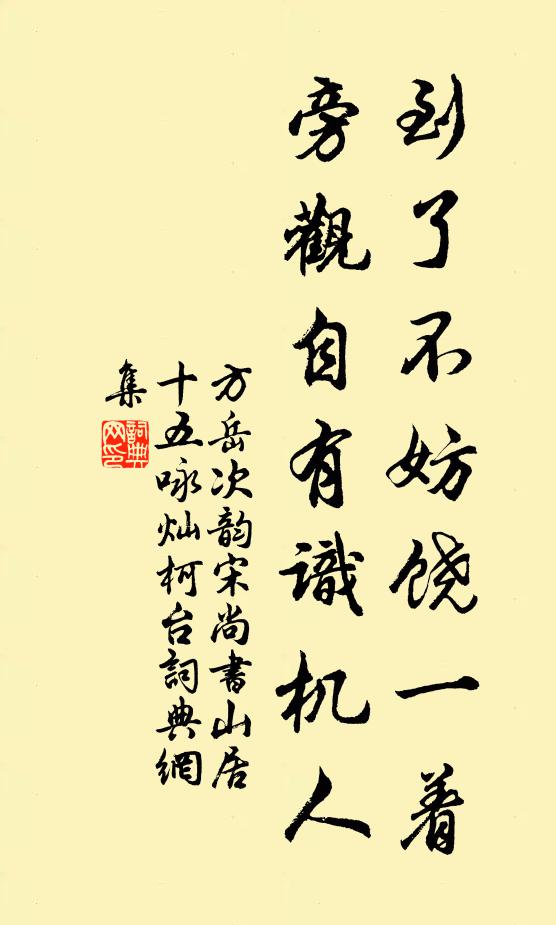 到了不妨饶一着
旁觀自有識机人
方岳次韵宋尚書山居
十五咏灿柯台詞典網
集
詞典网印